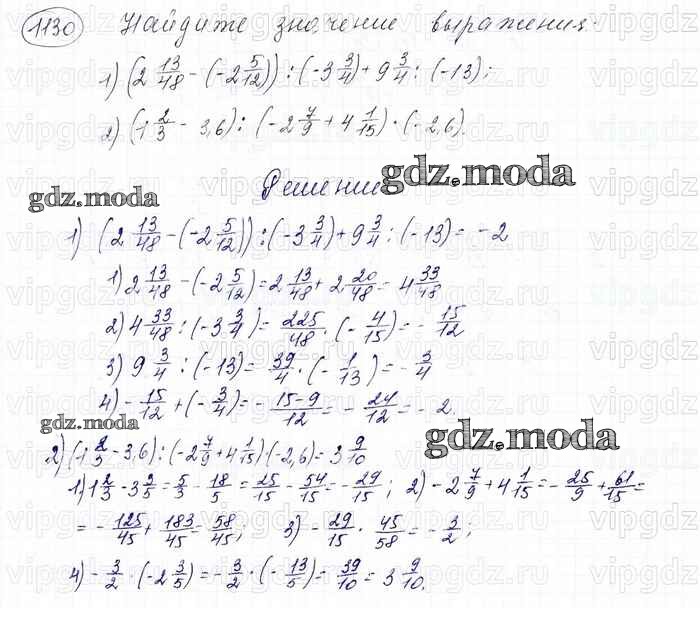 1130 Найдите значение выражения.
1) (2 13/48 - (-2 5/12)) : (-3 3/4) + 9 3/4 : (-13);
2) (1 2/3 - 3,6) : (-2 7/9 + 4 1/15) · (-2,6).
gdz.moda
Решение
gdz.moda
1) (2 13/48 - (-2 5/12)) : (-3 3/4) + 9 3/4 : (-13) = -2
1) 2 13/48 - (-2 5/12) = 2 13/48 + 2 20/48 = 4 33/48
2) 4 33/48 : (-3 3/4) = 225/48 · (-4/15) = -15/12
3) 9 3/4 : (-13) = 39/4 · (-1/13) = -3/4
4) -15/12 + (-3/4) = -15-9/12 = -24/12 = -2.
gdz.moda
gdz.moda
2) (1 2/3 - 3,6) : (-2 7/9 + 4 1/15) (-2,6) = 3 9/10
1) 1 2/3 - 3 2/5 = 5/3 - 18/5 = 25/15 - 54/15 = -29/15; 2) -2 7/9 + 4 1/15 = -25/9 + 61/15 =
= -125/45 + 183/45 = 58/45; 3) -29/15 · 45/58 = -3/2;
4) -3/2 · (-2 3/5) = -3/2 · (-13/5) = 39/10 = 3 9/10.